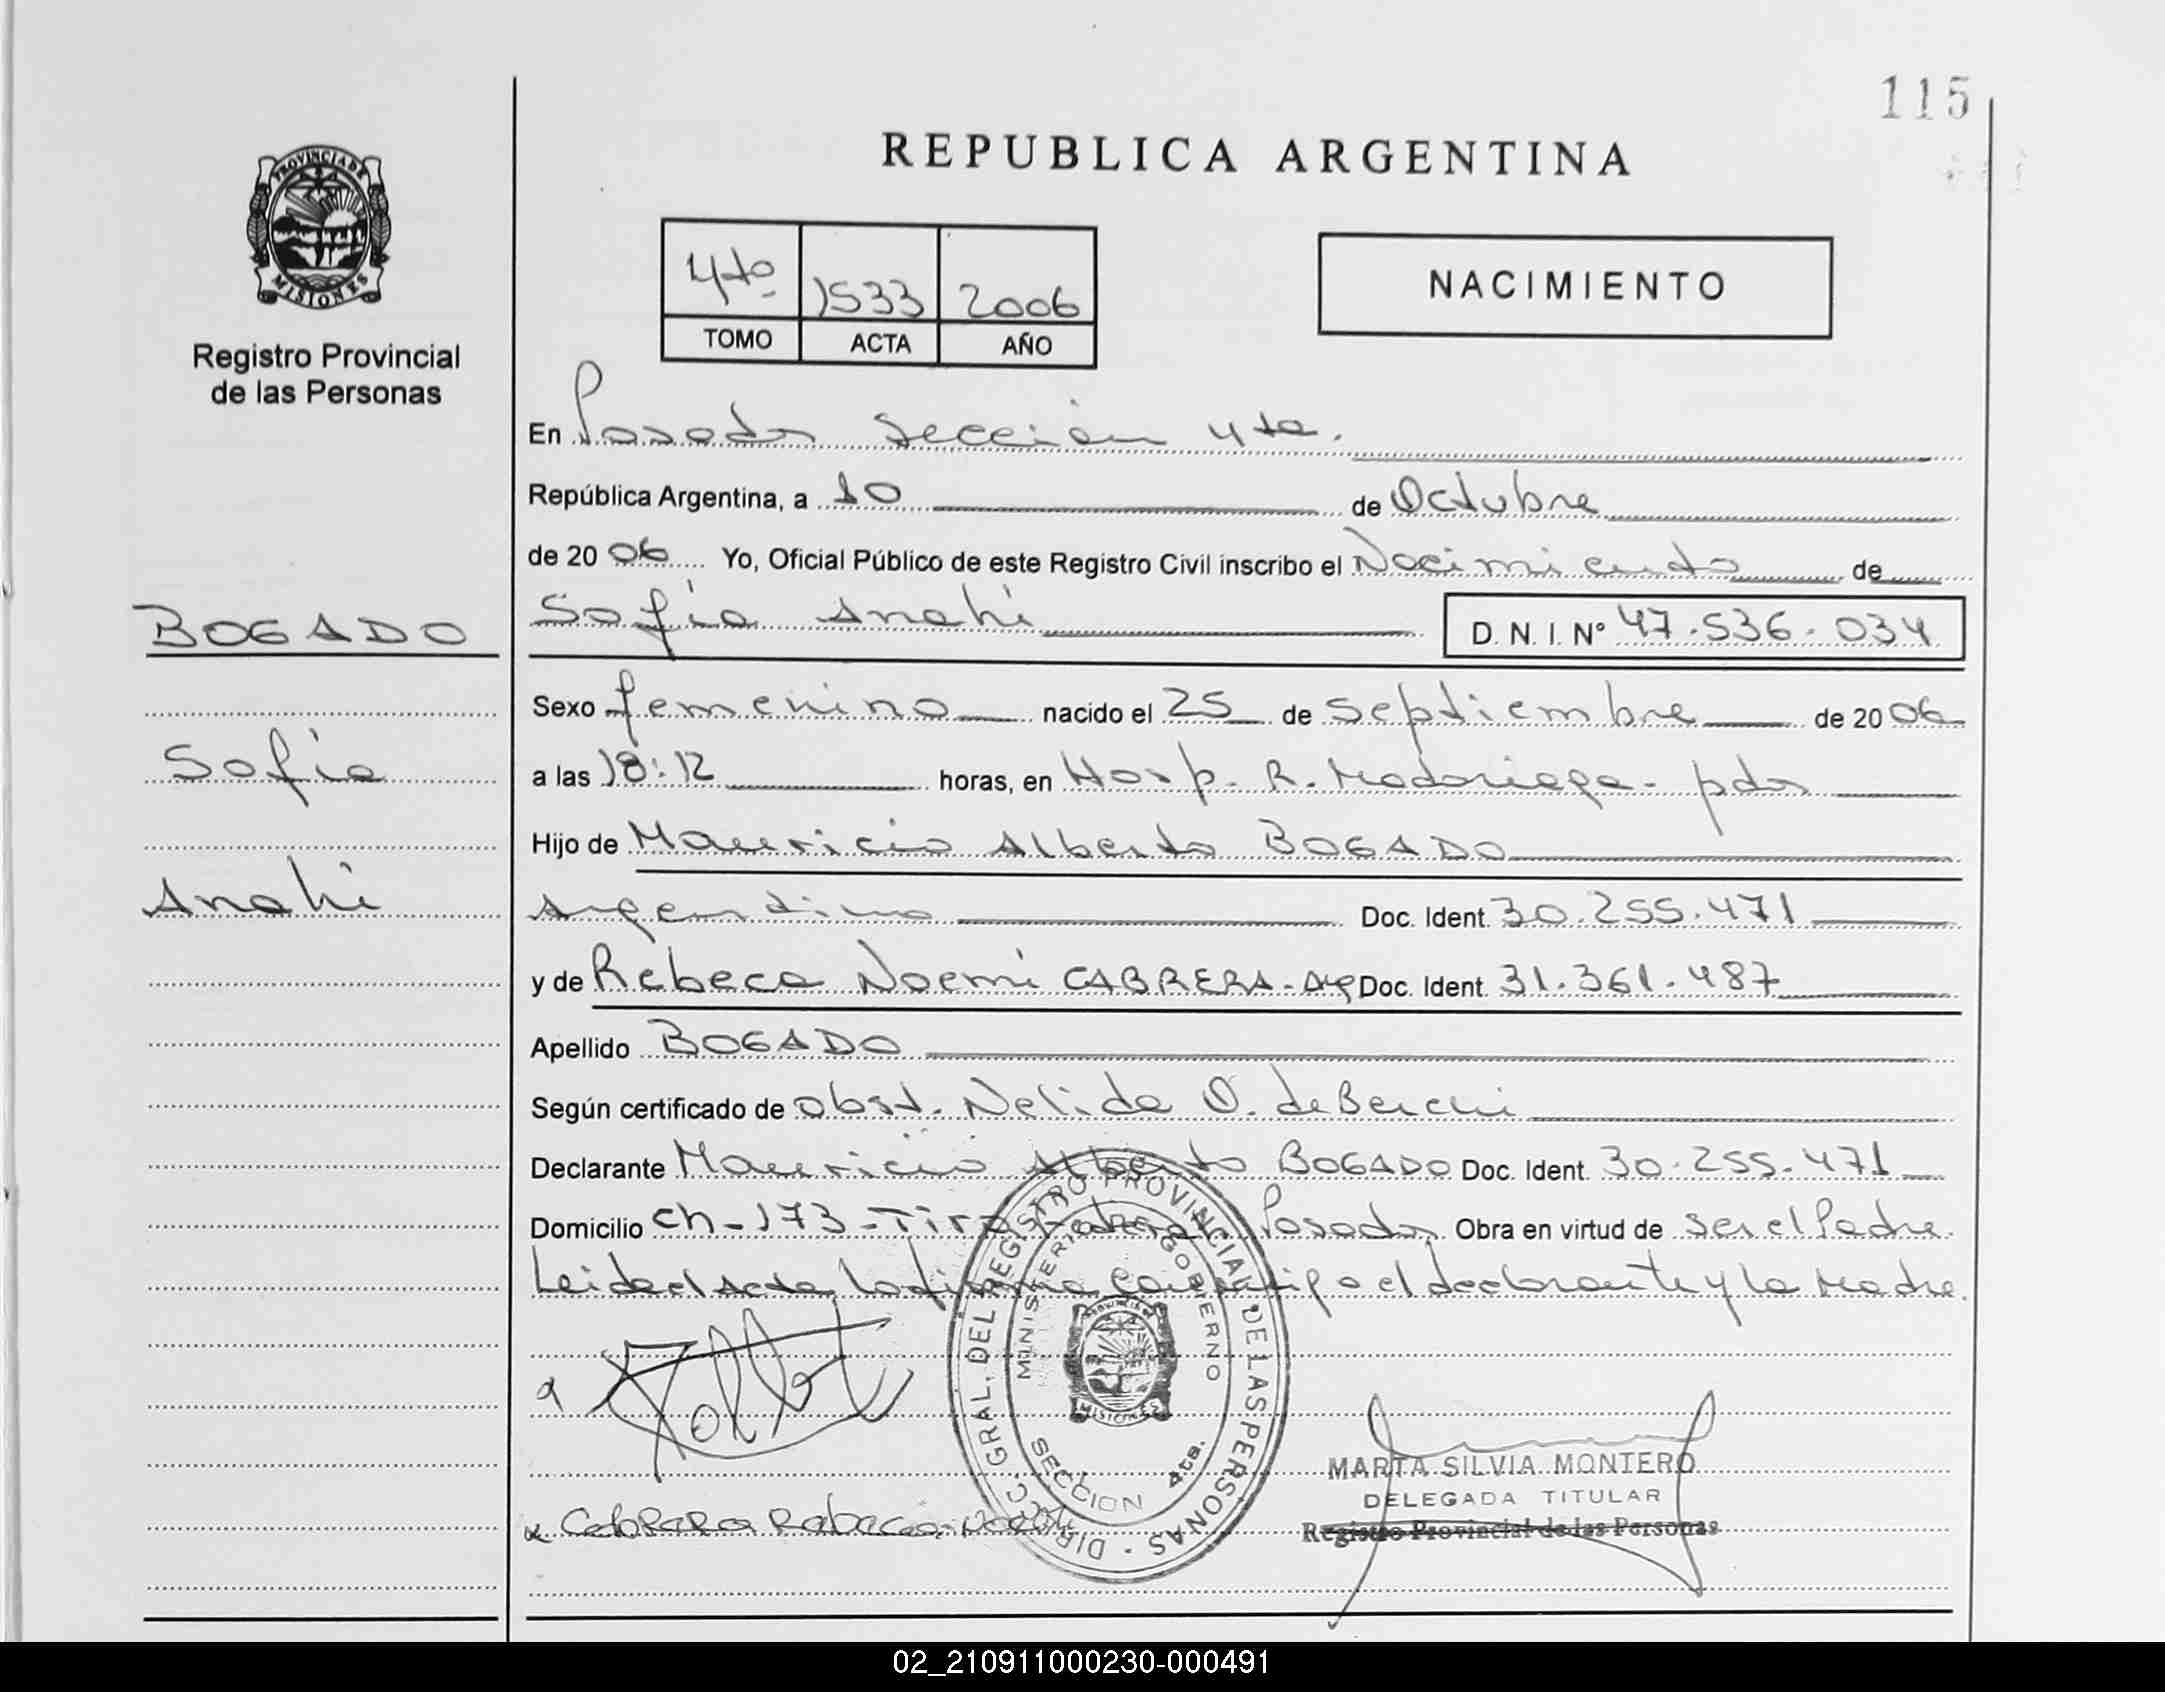 115
REPUBLICA ARGENTINA
PROVINCIA DE
MISIONES
Registro Provincial
de las Personas
4to 1533 2006
TOMO ACTA AÑO
NACIMIENTO
En Posadas Sección 4ta.
República Argentina, a 10 de Octubre
de 2006 Yo, Oficial Público de este Registro Civil inscribo el Nacimiento de
BOGADO
Sofía Anahi D. N. I. Nº 47.536.034
Sexo femenino nacido el 25 de Septiembre de 2006
Sofía
a las 18:12 horas, en Hosp. R. Madariaga - pdas
Hijo de Mauricio Alberto BOGADO
Anahi
Argentino Doc. Ident. 30.255.471
y de Rebeca Noemi CABRERA - Arg Doc. Ident. 31.361.487
Apellido BOGADO
Según certificado de obst. Nelida O. de
Declarante Mauricio Alberto BOGADO Doc. Ident. 30.255.471
Domicilio Ch - 173 - Posadas Obra en virtud de ser el Padre.
Leida el Acta, la firma conmigo el declarante y la Madre.
DIRECC. GRAL. DEL REGISTRO PROVINCIAL DE LAS PERSONAS
MINISTERIO DE GOBERNO
PROVINCIA DE
MISIONES
SECCION 4ta.
MARTA SILVIA MONTERO
DELEGADA TITULAR
Registro Provincial de las Personas
Cabrera Rebeca Noemi
02_210911000230-000491